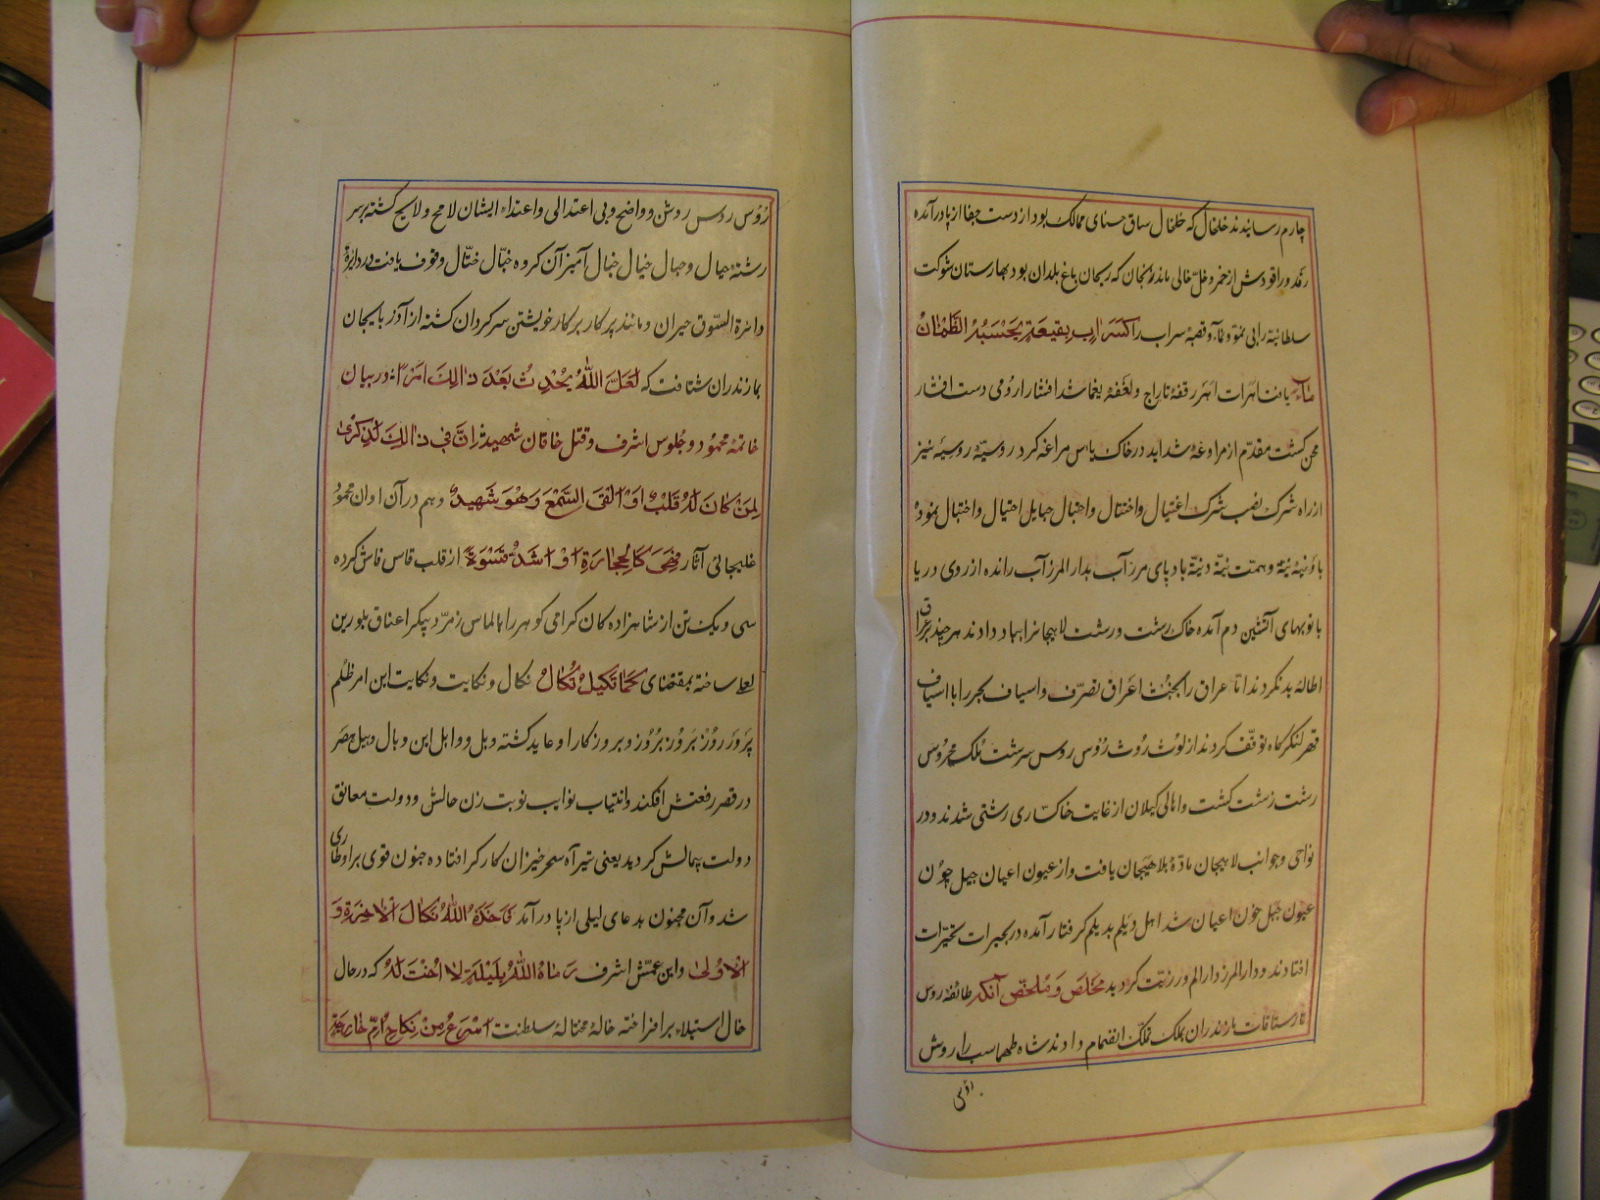 چارم رسانیدند خلخال که خلخال ساق حسنای ممالک بود از دست جفا از پا درآمده
رفد و راقودش از خمر و خل خالی ماند و زنجان که ریحان باغ بلدان بود بهارستان شوکت
سلطانیه را بی نمو و نماء و قصبهٔ سراب را کَسَرابٍ بِقیعَةٍ یَحسَبُهُ الظَّمْانُ
ماءً یافت اهرات اهر رقفهٔ تاراج و لغفهٔ یغما شد افشار ارومی دست افشار
محن گشت مقدم از مراوغهٔ شداید در خاک یاس مراغه کرد روسیّهٔ روسیه نیز
از راه شرک نصب شرک اغتیال و اختتال و احتبال حبایل احتیال و اختبال نمود
با و همت دنیّه بادپای مرز آب بدار المرز آب رانده از روی دریا
با توبهای آتشین دم آمده خاک رشت و رشت لاهیجانرا بباد دادند هر چند بعراق
اطالهٔ ید نکردند اما عراق را بجنت اعراق تصرف و اسیاف بحر را با اسیاف
قهر لنگرگاه توقف کردند از لوث روث رؤس روس سرشت ملک محروس
رشت زشت گشت و اهالی گیلان از غایت خاکساری رشتی شدند و در
نواحی و جوانب لاهیجان مادهٔ بلا هیجان یافت و از عیون اعیان جیل چون
عیون جبل خون اعیان شد اهل دیلم بدیلم گرفتار آمده در بحیرات تحیرات
افتادند و دار المرز دار الم و رزیت گردید مخلص و ملخص آنکه طائفهٔ روس
تا رستاقات مازندران بملک تملک انضمام دادند شاه طهماسب را روش
رؤس
رؤس روس روشن و واضح و بی اعتدالی و اعتداء ایشان لامح و لایح گشته بر سر
رشتهٔ حبال و حبال خیال خبال آمیز آن گروه ختال وقوف یافت در دایرهٔ
دائرة السّوق حیران و مانند پرکار بر کار خویشتن سرگردان گشته از آذربایجان
بمازندران شتافت که لَعَلَّ اللّٰهَ یُحْدِثُ بَعْدَ ذٰالِکَ اَمْراً در بیان
خاتمهٔ محمود و جلوس اشرف و قتل خاقان شهید اِنَّ فی ذٰالِکَ لَذِکریٰ
لِمَنْ کَانَ لَهُ قَلْبٌ اَوْ اَلْقَی السَّمْعَ وَهُوَ شَهیدٌ و هم در آن اوان محمود
غلیجائی آثار فَهِیَ کَالْحِجَارَةِ اَوْ اَشَدُّ قَسْوَةً از قلب قاس فاش کرده
سی و یک تن از شاهزاده کان گرامی گوهر را بالماس زمرد پیکر اعناق بلورین
لعلی ساخته بمقتضای کَمَا تَکیلُ تُکَالُ نکال و نکایت و نکایت این امر ظلم
پرور روز بروز بروز و بروزگار او عاید گشته وبل و وابل این وبال و بیل حصر
در قصر رفعتش افکند و انتیاب نوایب نوبت زن حالش و دولت معانق
دولت پیمالش گردید یعنی تیر آه سحرخیزان کارگر افتاده جنون قوی بر او طاری
شد و آن مجنون بدعای لیلی از پا درآمد فَاَخَذَهُ اللّٰهُ نَکَالَ الْاٰخِرَةِ وَ
الْاُولیٰ و ابن عمّش اشرف رَمَاهُ اللّٰهُ بِلَیْلَةٍ لَا اُخْتَ لَهُ که در حال
خال استیلاء برافراخته خالهٔ مختالهٔ سلطنت اَسْرَعُ مِنْ نِکَاحِ اُمِّ خَارِجَة